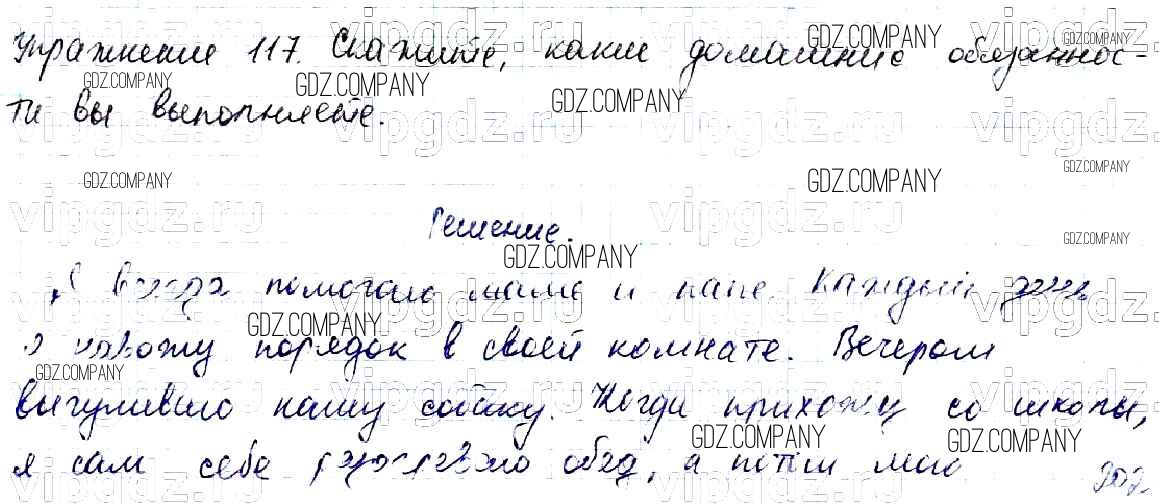 Упражнение 117. Скажите, какие домашние обязаннос-
ти вы выполняете.
Решение.
Я всегда помогаю маме и папе. Каждый день
я навожу порядок в своей комнате. Вечером
выгуливаю нашу собаку. Когда прихожу со школы,
я сам себе разогреваю обед, а потом мою
vipgdz.ru
GDZ.COMPANY